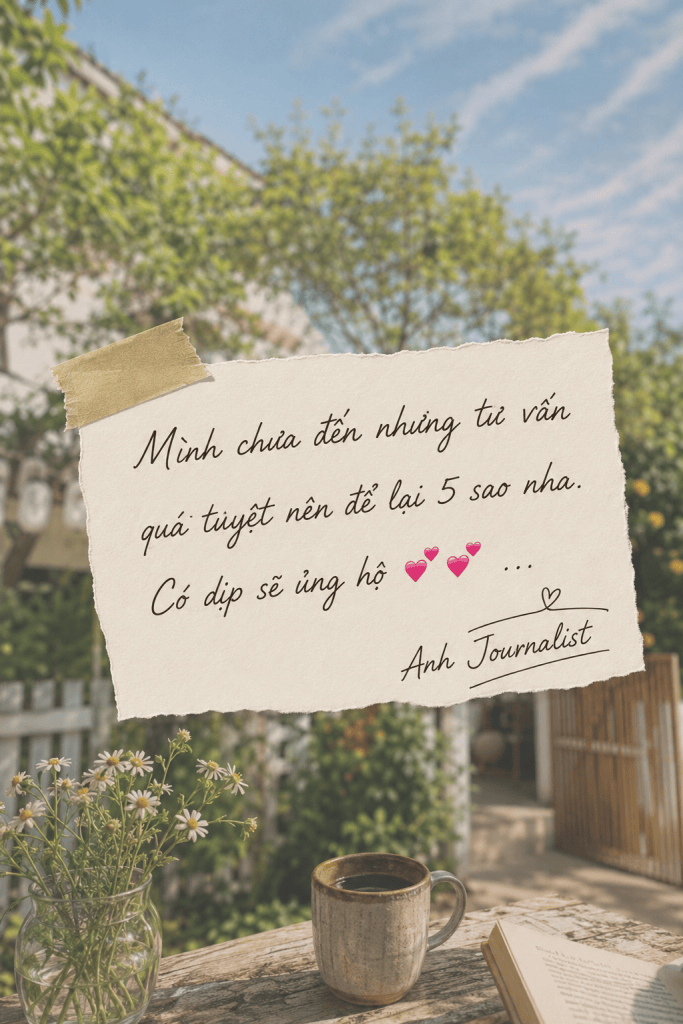 Mình chưa đến nhưng tư vấn
quá tuyệt nên để lại 5 sao nha.
Có dịp sẽ ủng hộ 💕💕 ...
Anh Journalist